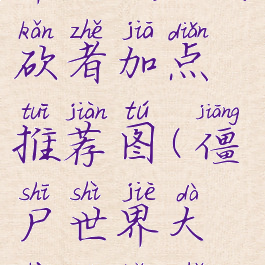 kǎn zhě jiā diǎn
砍者加点
tuī jiàn tú jiāng
推荐图(僵
shī shì jiè dà
尸世界大